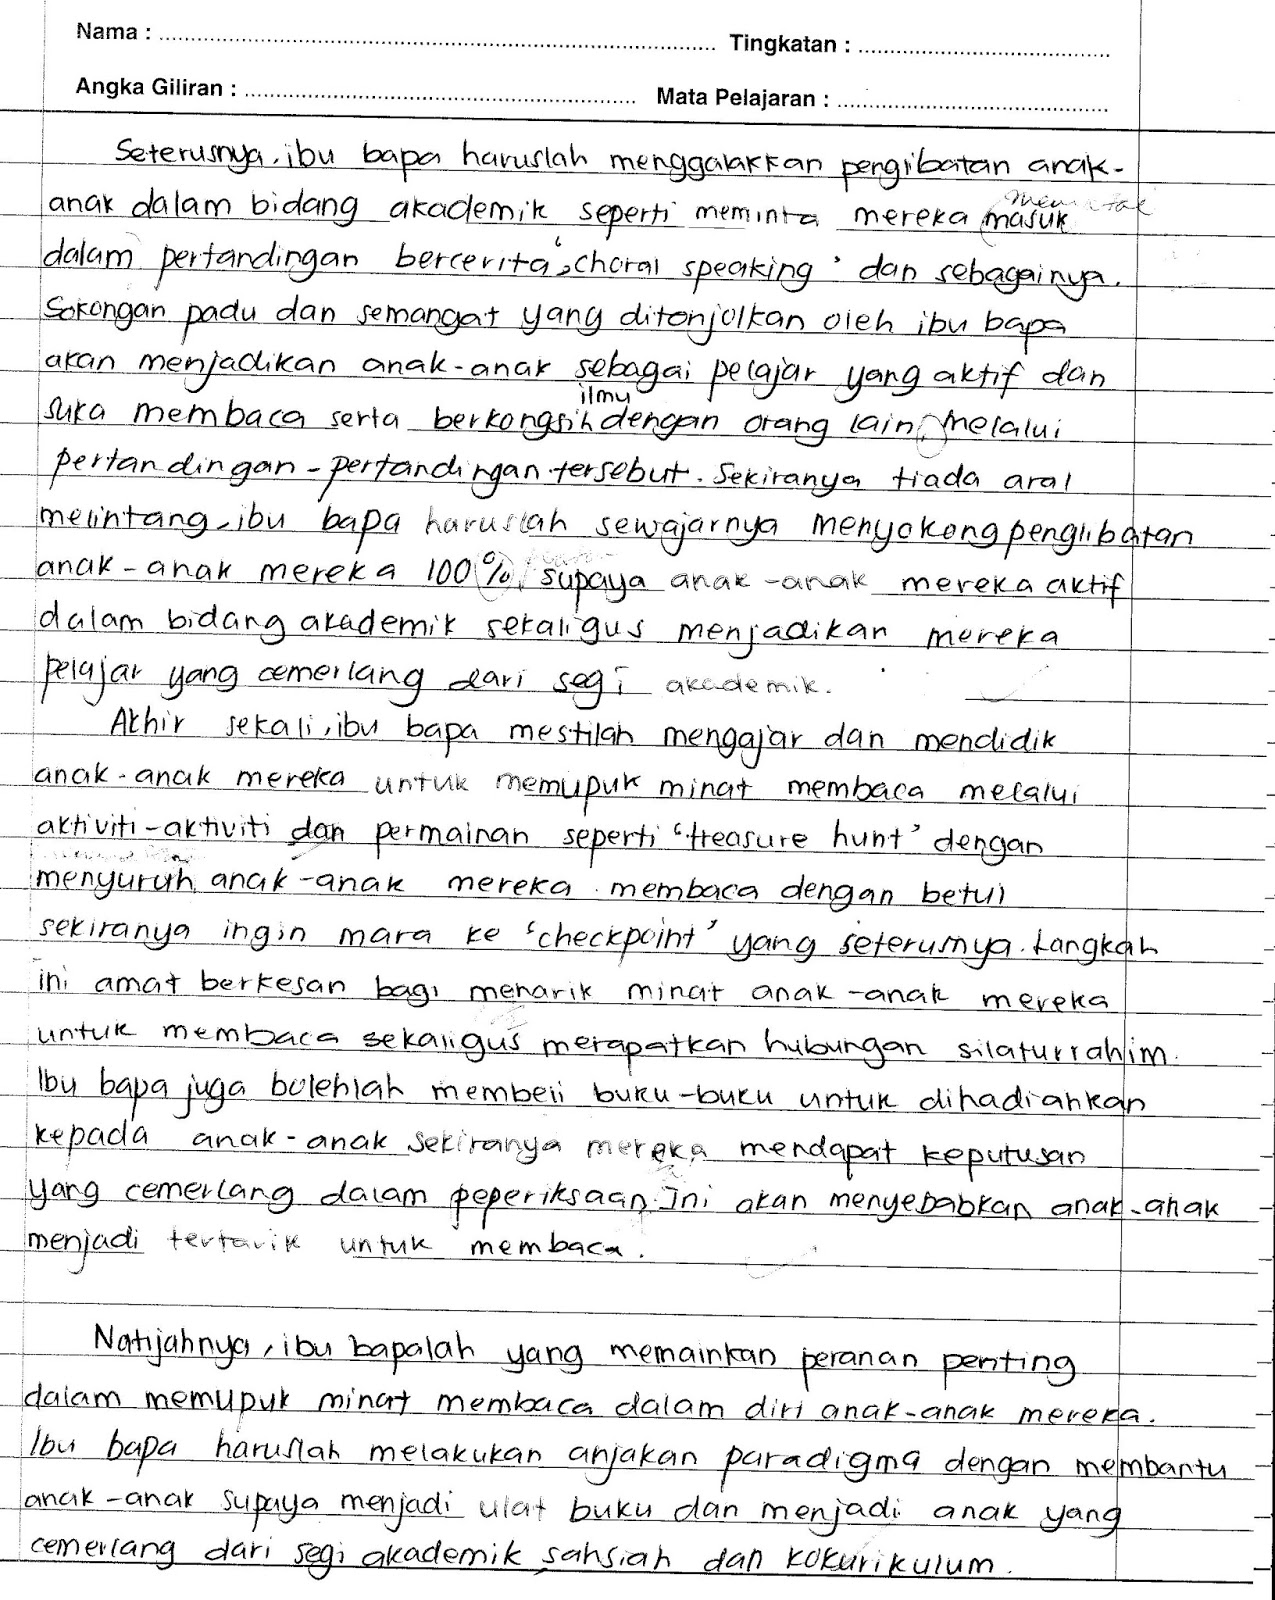 Nama : Tingkatan :
Angka Giliran : Mata Pelajaran :
Seterusnya, ibu bapa haruslah menggalakkan pengibatan anak-
anak dalam bidang akademik seperti meminta mereka masuk
dalam pertandingan bercerita, 'choral speaking' dan sebagainya.
Sokongan padu dan semangat yang ditonjolkan oleh ibu bapa
akan menjadikan anak-anak sebagai pelajar yang aktif dan
ilmu
suka membaca serta berkongsih dengan orang lain, melalui
pertandingan-pertandingan tersebut. Sekiranya tiada aral
melintang, ibu bapa haruslah sewajarnya menyokong penglibatan
anak-anak mereka 100%, supaya anak-anak mereka aktif
dalam bidang akademik sekaligus menjadikan mereka
pelajar yang cemerlang dari segi akademik.
Akhir sekali, ibu bapa mestilah mengajar dan mendidik
anak-anak mereka untuk memupuk minat membaca melalui
aktiviti-aktiviti dan permainan seperti 'treasure hunt' dengan
menyuruh anak-anak mereka membaca dengan betul
sekiranya ingin mara ke 'checkpoint' yang seterusnya. Langkah
ini amat berkesan bagi menarik minat anak-anak mereka
untuk membaca sekaligus merapatkan hubungan silaturrahim.
Ibu bapa juga bolehlah membeli buku-buku untuk dihadiahkan
kepada anak-anak sekiranya mereka mendapat keputusan
yang cemerlang dalam peperiksaan. Ini akan menyebabkan anak-anak
menjadi tertarik untuk membaca.
Natijahnya, ibu bapalah yang memainkan peranan penting
dalam memupuk minat membaca dalam diri anak-anak mereka.
Ibu bapa haruslah melakukan anjakan paradigma dengan membantu
anak-anak supaya menjadi ulat buku dan menjadi anak yang
cemerlang dari segi akademik, sahsiah dan kokurikulum.